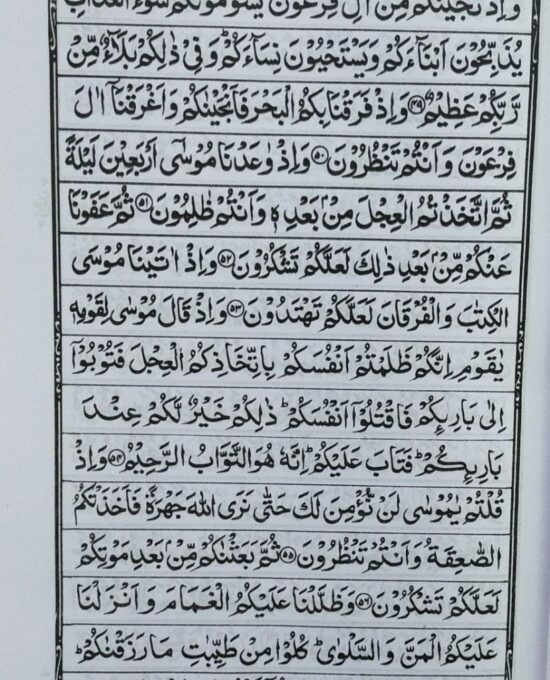 وَاِذْ نَجَّيْنٰكُمْ مِّنْ اٰلِ فِرْعَوْنَ يَسُوْمُوْنَكُمْ سُوْٓءَ الْعَذَابِ
يُذَبِّحُوْنَ اَبْنَآءَكُمْ وَيَسْتَحْيُوْنَ نِسَآءَكُمْ ؕ وَفِيْ ذٰلِكُمْ بَلَآءٌ مِّنْ
رَّبِّكُمْ عَظِيْمٌ ﴿۴۹﴾ وَاِذْ فَرَقْنَا بِكُمُ الْبَحْرَ فَاَنْجَيْنٰكُمْ وَاَغْرَقْنَآ اٰلَ
فِرْعَوْنَ وَاَنْتُمْ تَنْظُرُوْنَ ﴿۵۰﴾ وَاِذْ وٰعَدْنَا مُوْسٰٓى اَرْبَعِيْنَ لَيْلَةً
ثُمَّ اتَّخَذْتُمُ الْعِجْلَ مِنْۢ بَعْدِهٖ وَاَنْتُمْ ظٰلِمُوْنَ ﴿۵۱﴾ ثُمَّ عَفَوْنَا
عَنْكُمْ مِّنْۢ بَعْدِ ذٰلِكَ لَعَلَّكُمْ تَشْكُرُوْنَ ﴿۵۲﴾ وَاِذْ اٰتَيْنَا مُوْسَى
الْكِتٰبَ وَالْفُرْقَانَ لَعَلَّكُمْ تَهْتَدُوْنَ ﴿۵۳﴾ وَاِذْ قَالَ مُوْسٰى لِقَوْمِهٖ
يٰقَوْمِ اِنَّكُمْ ظَلَمْتُمْ اَنْفُسَكُمْ بِاتِّخَاذِكُمُ الْعِجْلَ فَتُوْبُوْٓا
اِلٰى بَارِئِكُمْ فَاقْتُلُوْٓا اَنْفُسَكُمْ ؕ ذٰلِكُمْ خَيْرٌ لَّكُمْ عِنْدَ
بَارِئِكُمْ ؕ فَتَابَ عَلَيْكُمْ ؕ اِنَّهٗ هُوَ التَّوَّابُ الرَّحِيْمُ ﴿۵۴﴾ وَاِذْ
قُلْتُمْ يٰمُوْسٰى لَنْ نُّؤْمِنَ لَكَ حَتّٰى نَرَى اللّٰهَ جَهْرَةً فَاَخَذَتْكُمُ
الصّٰعِقَةُ وَاَنْتُمْ تَنْظُرُوْنَ ﴿۵۵﴾ ثُمَّ بَعَثْنٰكُمْ مِّنْۢ بَعْدِ مَوْتِكُمْ
لَعَلَّكُمْ تَشْكُرُوْنَ ﴿۵۶﴾ وَظَلَّلْنَا عَلَيْكُمُ الْغَمَامَ وَاَنْزَلْنَا
عَلَيْكُمُ الْمَنَّ وَالسَّلْوٰى ؕ كُلُوْا مِنْ طَيِّبٰتِ مَا رَزَقْنٰكُمْ ؕ